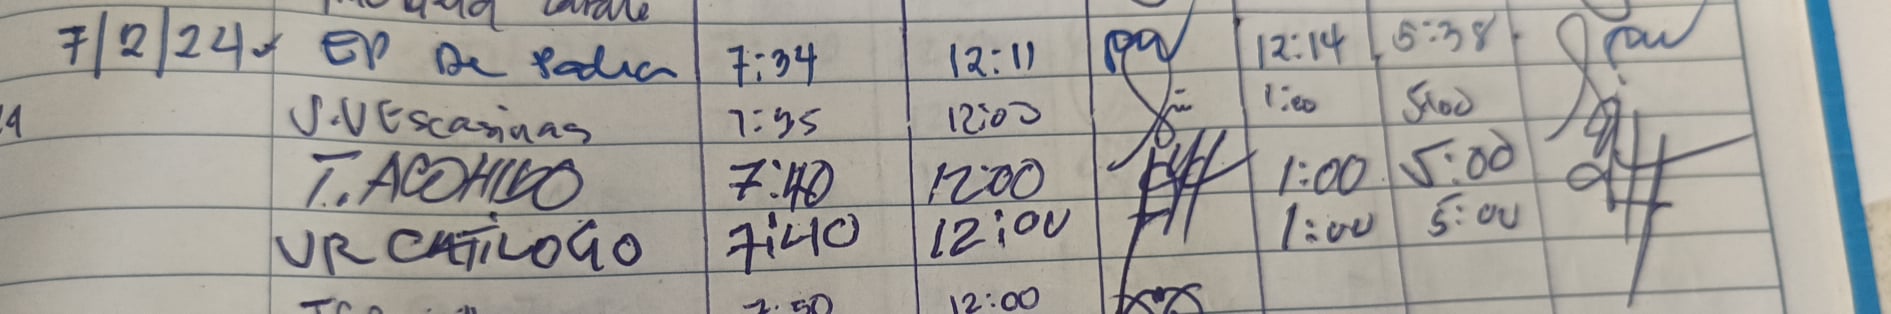 7/2/24 EP De Pedra 7:34 12:11 12:14 5:38
J.V Escasinas 7:35 12:00 1:00 5:00
T. ACOHIDO 7:40 12:00 1:00 5:00
VR CATILOGO 7:40 12:00 1:00 5:00
7:50 12:00